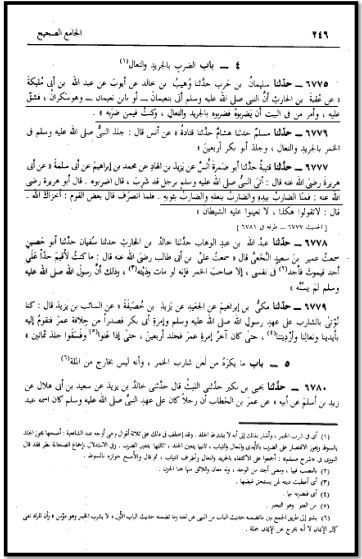 ٢٤٦
الجامع الصحيح
٤ — باب الضرب بالجريد والنعال (١)
٦٧٧٥ — حدّثنا سليمان بن حرب حدّثنا وهيب بن خالد عن أيوب عن عبد الله بن أبى مليكة
« عن عقبة بن الحارث أن النبى صلى الله عليه وسلم أتى بنعيمان — أو بابن نعيمان — وهو سكران ، فشق
عليه ، وأمر من فى البيت أن يضربوه فضربوه بالجريد والنعال ، وكنت فيمن ضربه » .
٦٧٧٦ — حدّثنا مسلم حدثنا هشام حدّثنا قتادة « عن أنس قال : جلد النبى صلى الله عليه وسلم فى
الخمر بالجريد والنعال ، وجلد أبو بكر أربعين »
٦٧٧٧ — حدّثنا قتيبة حدّثنا أبو ضمرة أنس عن يزيد بن الهاد عن محمد بن إبراهيم عن أبى سلمة « عن أبى
هريرة رضى الله عنه قال : أتى النبى صلى الله عليه وسلم برجل قد شرب ، قال اضربوه . قال أبو هريرة رضى
الله عنه : فمنا الضارب بيده والضارب بنعله والضارب بثوبه . فلما انصرف قال بعض القوم : أخزاك الله .
قال : لاتقولوا هكذا ، لا تعينوا عليه الشيطان »
[ الحديث ٦٧٧٧ — طرفه فى ٦٧٨١ ]
٦٧٧٨ — حدّثنا عبد الله بن عبد الوهاب حدّثنا خالد بن الحارث حدثنا سفيان حدّثنا أبو حصين
سمعت عمير بن سعيد النخعى قال « سمعت على بن أبى طالب رضى الله عنه قال : ما كنت لأقيم حداً على
أحد فيموت فأجد (٢) فى نفسى ، إلا صاحب الخمر فإنه لو مات وديته (٣) ، وذلك أن رسول الله صلى الله عليه
وسلم لم يسنه »
٦٧٧٩ — حدّثنا مكى بن إبراهيم عن الجعيد عن يزيد بن خصيفة « عن السائب بن يزيد قال : كنا
نؤتى بالشارب على عهد رسول الله صلى الله عليه وسلم وإمرة أبى بكر فصدراً من خلافة عمر فنقوم إليه
بأيدينا ونعالنا وأرديتنا (٤) ، حتى كان آخر إمرة عمر فجلد أربعين ، حتى إذا عتوا (٥) وفسقوا جلد ثمانين »
٥ — باب ما يكره من لعن شارب الخمر ، وأنه ليس بخارج من الملة (٦)
٦٧٨٠ — حدّثنا يحيى بن بكير حدّثنى الليث قال حدّثنى خالد بن يزيد عن سعيد بن أبى هلال عن
زيد بن أسلم عن أبيه « عن عمر بن الخطاب أن رجلاً كان على عهد النبى صلى الله عليه وسلم كان اسمه عبد
(١) أى فى شرب الخمر ، وأشار بذلك إلى أنه لا يشترط الجلد . وقد اختلف فى ذلك على ثلاثة أقوال وهى أوجه عند الشافعية : أصحها يجوز الجلد
بالسوط ويجوز الاقتصار على الضرب بالأيدى والنعال والثياب ، ثانيها يتعين الجلد ، ثالثها يتعين الضرب .
(٢) بالنصب فيها ، ومعنى أجد من الوجد ، وله معان واللائق منها هنا الحزن .
(٣) أى أعطيت ديته لمن يستحق قبضها .
(٤) أى فنضربه بها .
(٥) من العتو وهو التجبر .